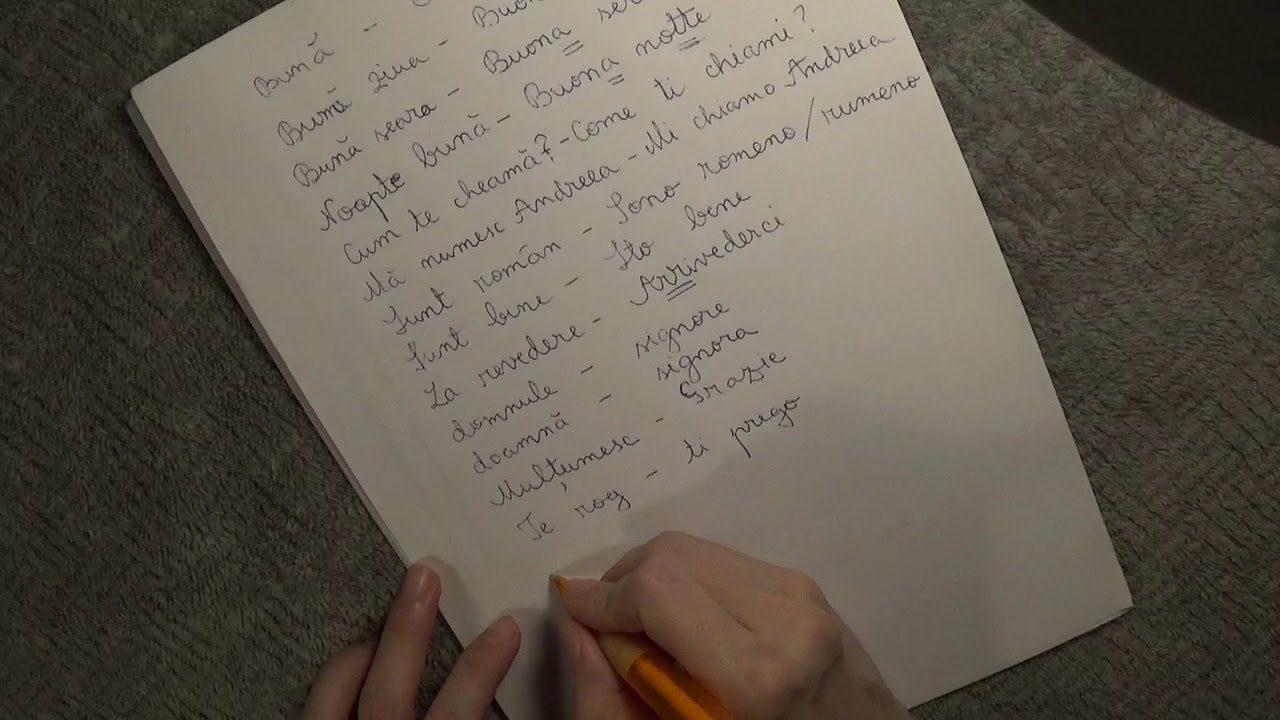 Bună -
Bună ziua - Buon
Bună seara - Buona ser
Noapte bună - Buona notte
Cum te cheamă? - Come ti chiami?
Mă numesc Andreea - Mi chiamo Andreea
Sunt român - Sono romeno/rumeno
Sunt bine - Sto bene
La revedere - Arrivederci
domnule - signore
doamnă - signora
Mulțumesc - Grazie
Te rog - ti prego